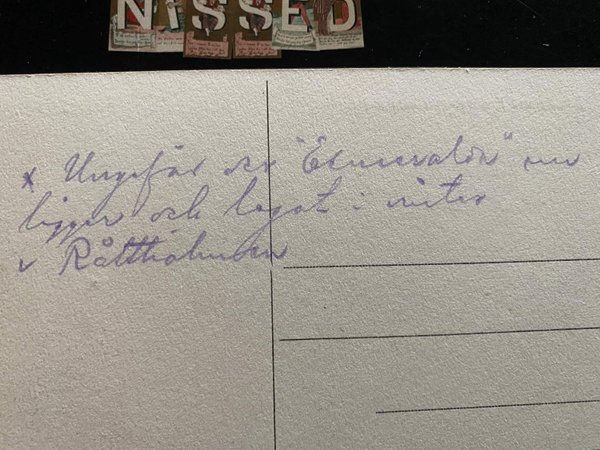 NISSED
x Ungefär der "Esmeralda" nu
ligger och legat i vinter
v Rättholmen